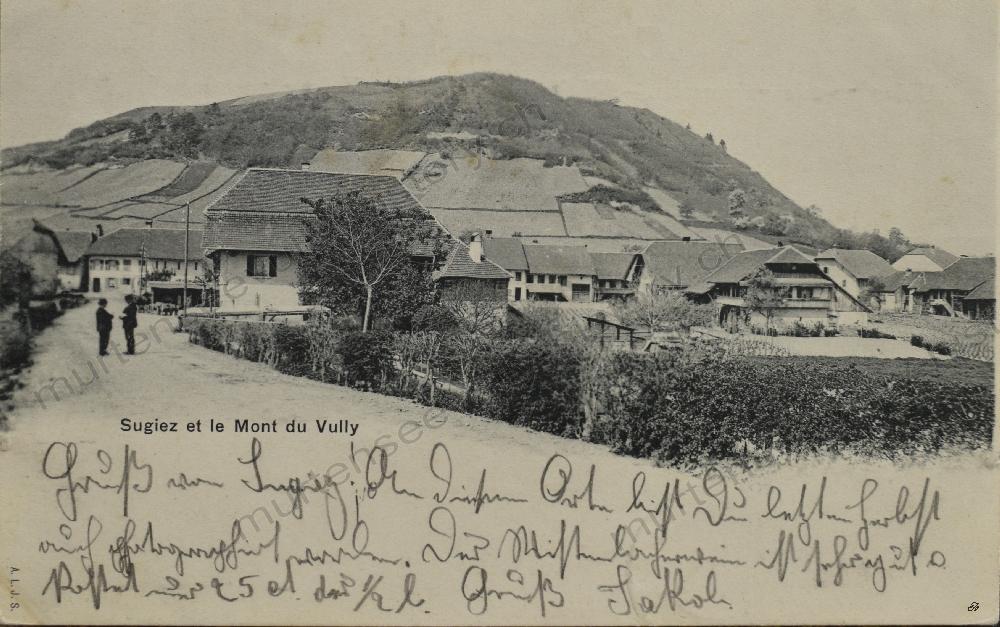 Sugiez et le Mont du Vully
Gruß von Sugiez. An diesem Ort bist Du letzten Herbst
auch photographiert worden. Der Mistlacherwein ist sehr gut &
kostet nur 25 ct. der ½ l. Gruß Jakob.
A. L. J. S.
murtensee-history.ch